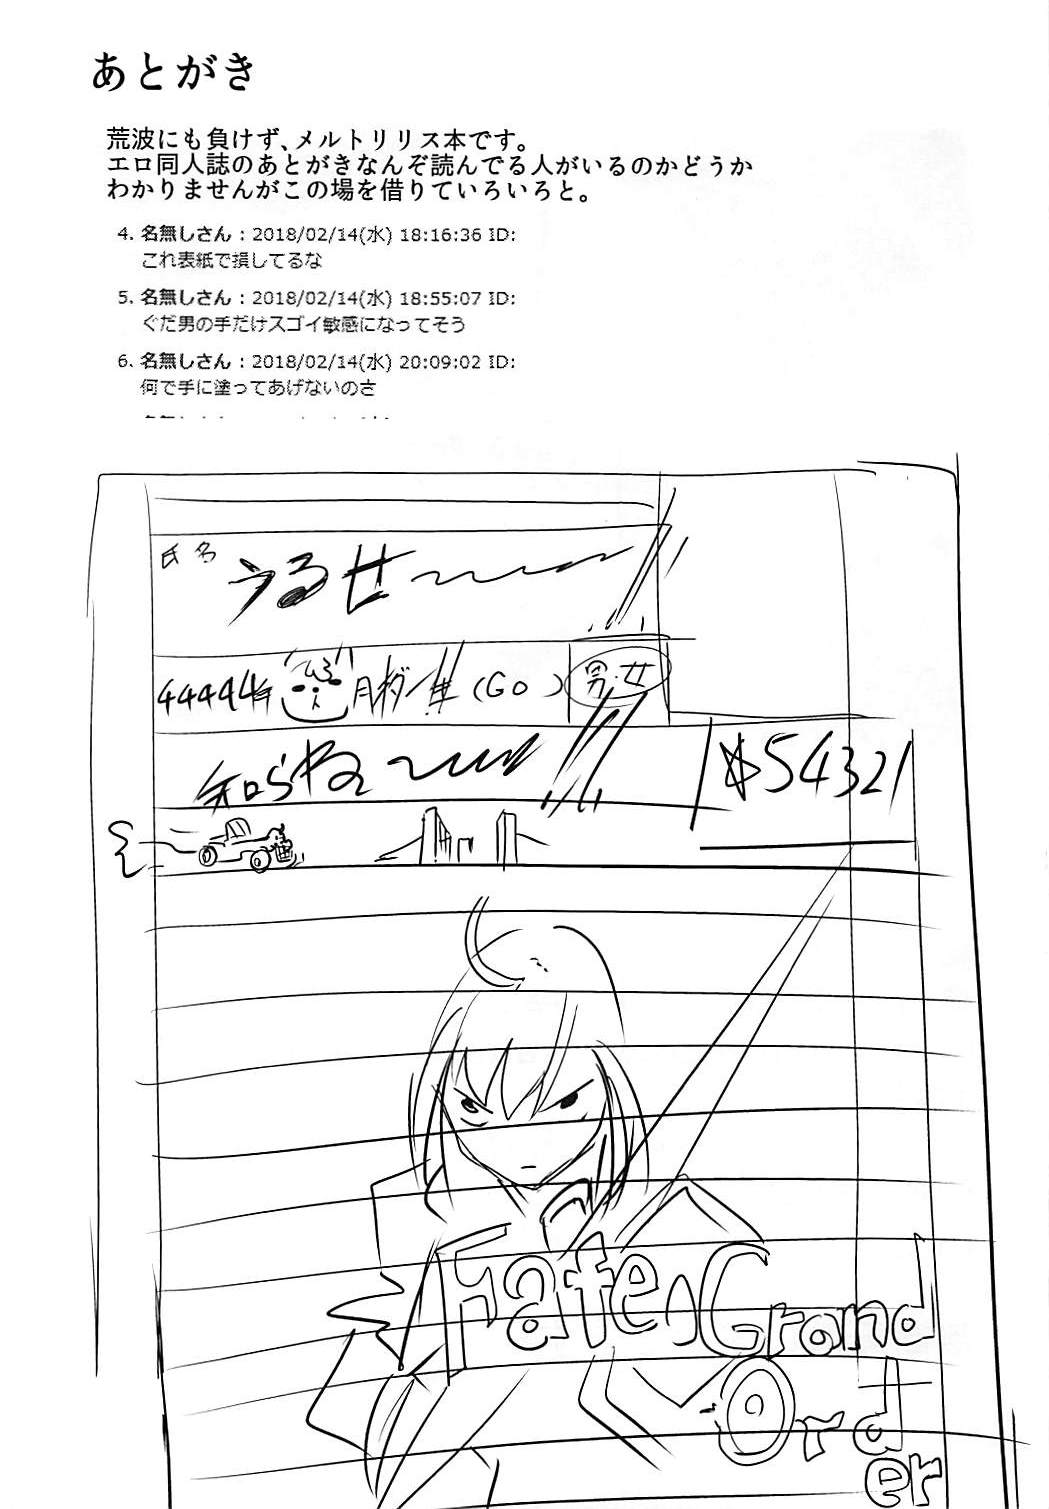 あとがき
荒波にも負けず､メルトリリス本です。
エロ同人誌のあとがきなんぞ読んでる人がいるのかどうか
わかりませんがこの場を借りていろいろと。
4. 名無しさん：2018/02/14(水) 18:16:36 ID:
これ表紙で損してるな
5. 名無しさん：2018/02/14(水) 18:55:07 ID:
ぐだ男の手だけスゴイ敏感になってそう
6. 名無しさん：2018/02/14(水) 20:09:02 ID:
何で手に塗ってあげないのさ
氏名
うるせ〜〜〜!!
44444年 月 (GO ) 男・女
知らね〜〜〜!!
¥54321
Fate/Grand
Order